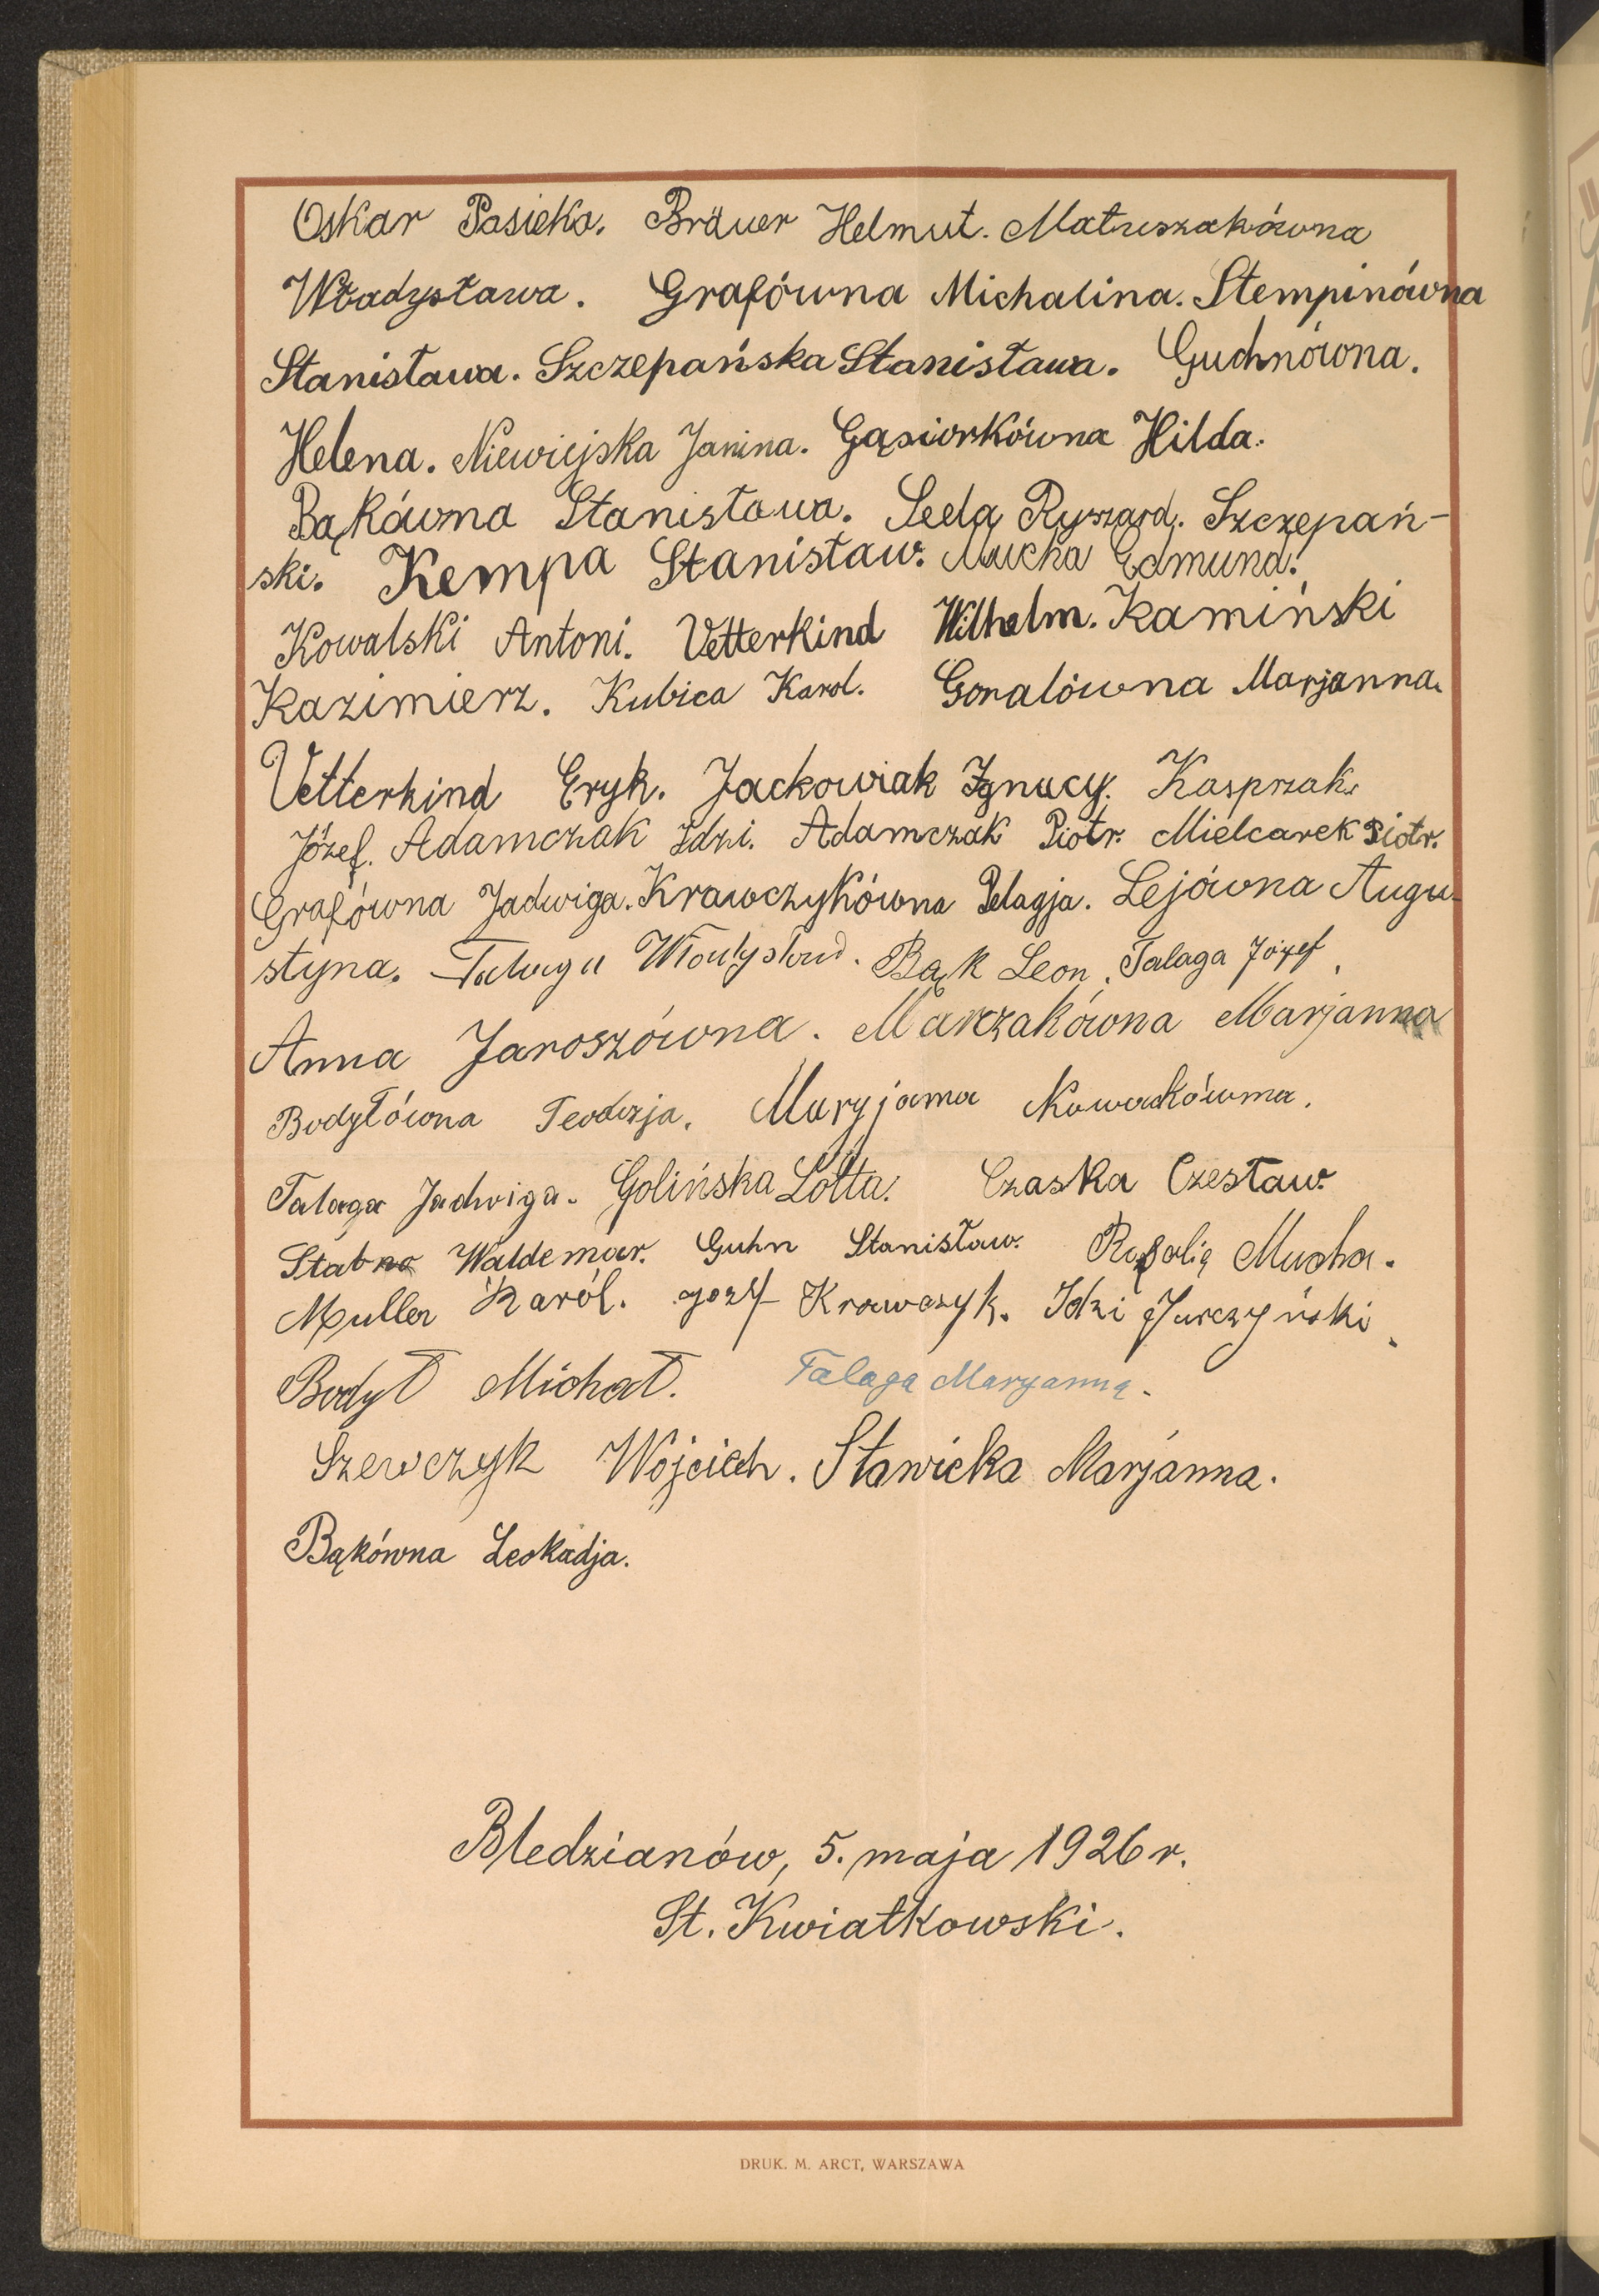 Oskar Pasieka. Bräuer Helmut. Matuszakówna
Władysława. Grafówna Michalina. Stempinówna
Stanisława. Szczepańska Stanisława. Guchnówna.
Helena. Niewiejska Janina. Gąsiorkówna Hilda.
Bąkówna Stanisława. Seela Ryszard. Szczepań-
ski. Kempa Stanisław. Mucha Edmund.
Kowalski Antoni. Vetterkind Wilhelm. Kamiński
Kazimierz. Kubica Karol. Goralówna Marjanna.
Vetterkind Eryk. Jackowiak Ignacy. Kasprzak.
Józef. Adamczak Idzi. Adamczak Piotr. Mielcarek Piotr.
Grafówna Jadwiga. Krawczykówna Pelagja. Lejówna Augu-
styna. Talaga Bąk Leon. Talaga Józef.
Anna Jaroszówna. Marzakówna Marjanna
Bodyłówna Maryjanna Nowakówna.
Talaga Jadwiga. Golińska Lotta. Czaska Czesław.
Waldemar. Guhn Stanisław. Rozalia Mucha.
Muller Karól. Jozef Krawczyk. Idzi Jurczyński.
Bodył Michał. Talaga Maryanna.
Szewczyk Wojciech. Stawicka Marjanna.
Bąkówna Leokadja.
Bledzianów, 5. maja 1926 r.
St. Kwiatkowski.
DRUK. M. ARCT, WARSZAWA